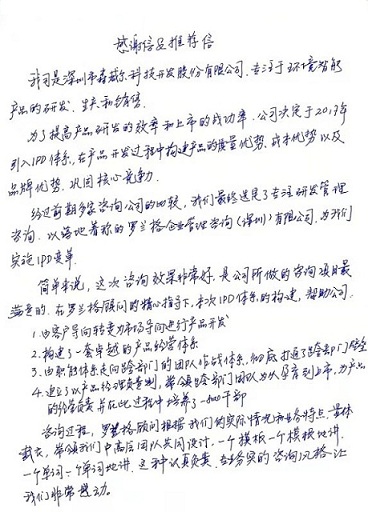 感谢信及推荐信
我司是深圳市森威尔科技开发股份有限公司，专注于环境智能
产品的研发、生产和销售。
为了提高产品研发的效率和上市的成功率，公司决定于2017年
引入IPD体系，在产品开发过程中构建产品的质量优势、成本优势以及
品牌优势，巩固核心竞争力。
经过前期多家咨询公司的比较，我们最终选择了专注研发管理
咨询、以落地著称的罗兰格企业管理咨询（深圳）有限公司，为我们
实施IPD变革。
简单来说，这次咨询效果非常好，是公司所做的咨询项目最
满意的。在罗兰格顾问的精心指导下，本次IPD体系的构建，帮助公司：
1. 由客户导向转变为市场导向进行产品开发
2. 构建了一套卓越的产品经营体系
3. 由职能体系走向跨部门的团队作战体系，彻底打通了跨部门壁垒
4. 建立了以产品经理负责制，带领跨部门团队为从孕育到上市，为产品
的经营负责，并在此过程中培养了一批干部
咨询过程，罗兰格顾问根据我们的实际情况和业务特点，量体
裁衣，带领我们中高层团队共同设计，一个模板一个模板地讲，
一个单词一个单词地讲，这种认真负责、务实的咨询风格让
我们非常感动。